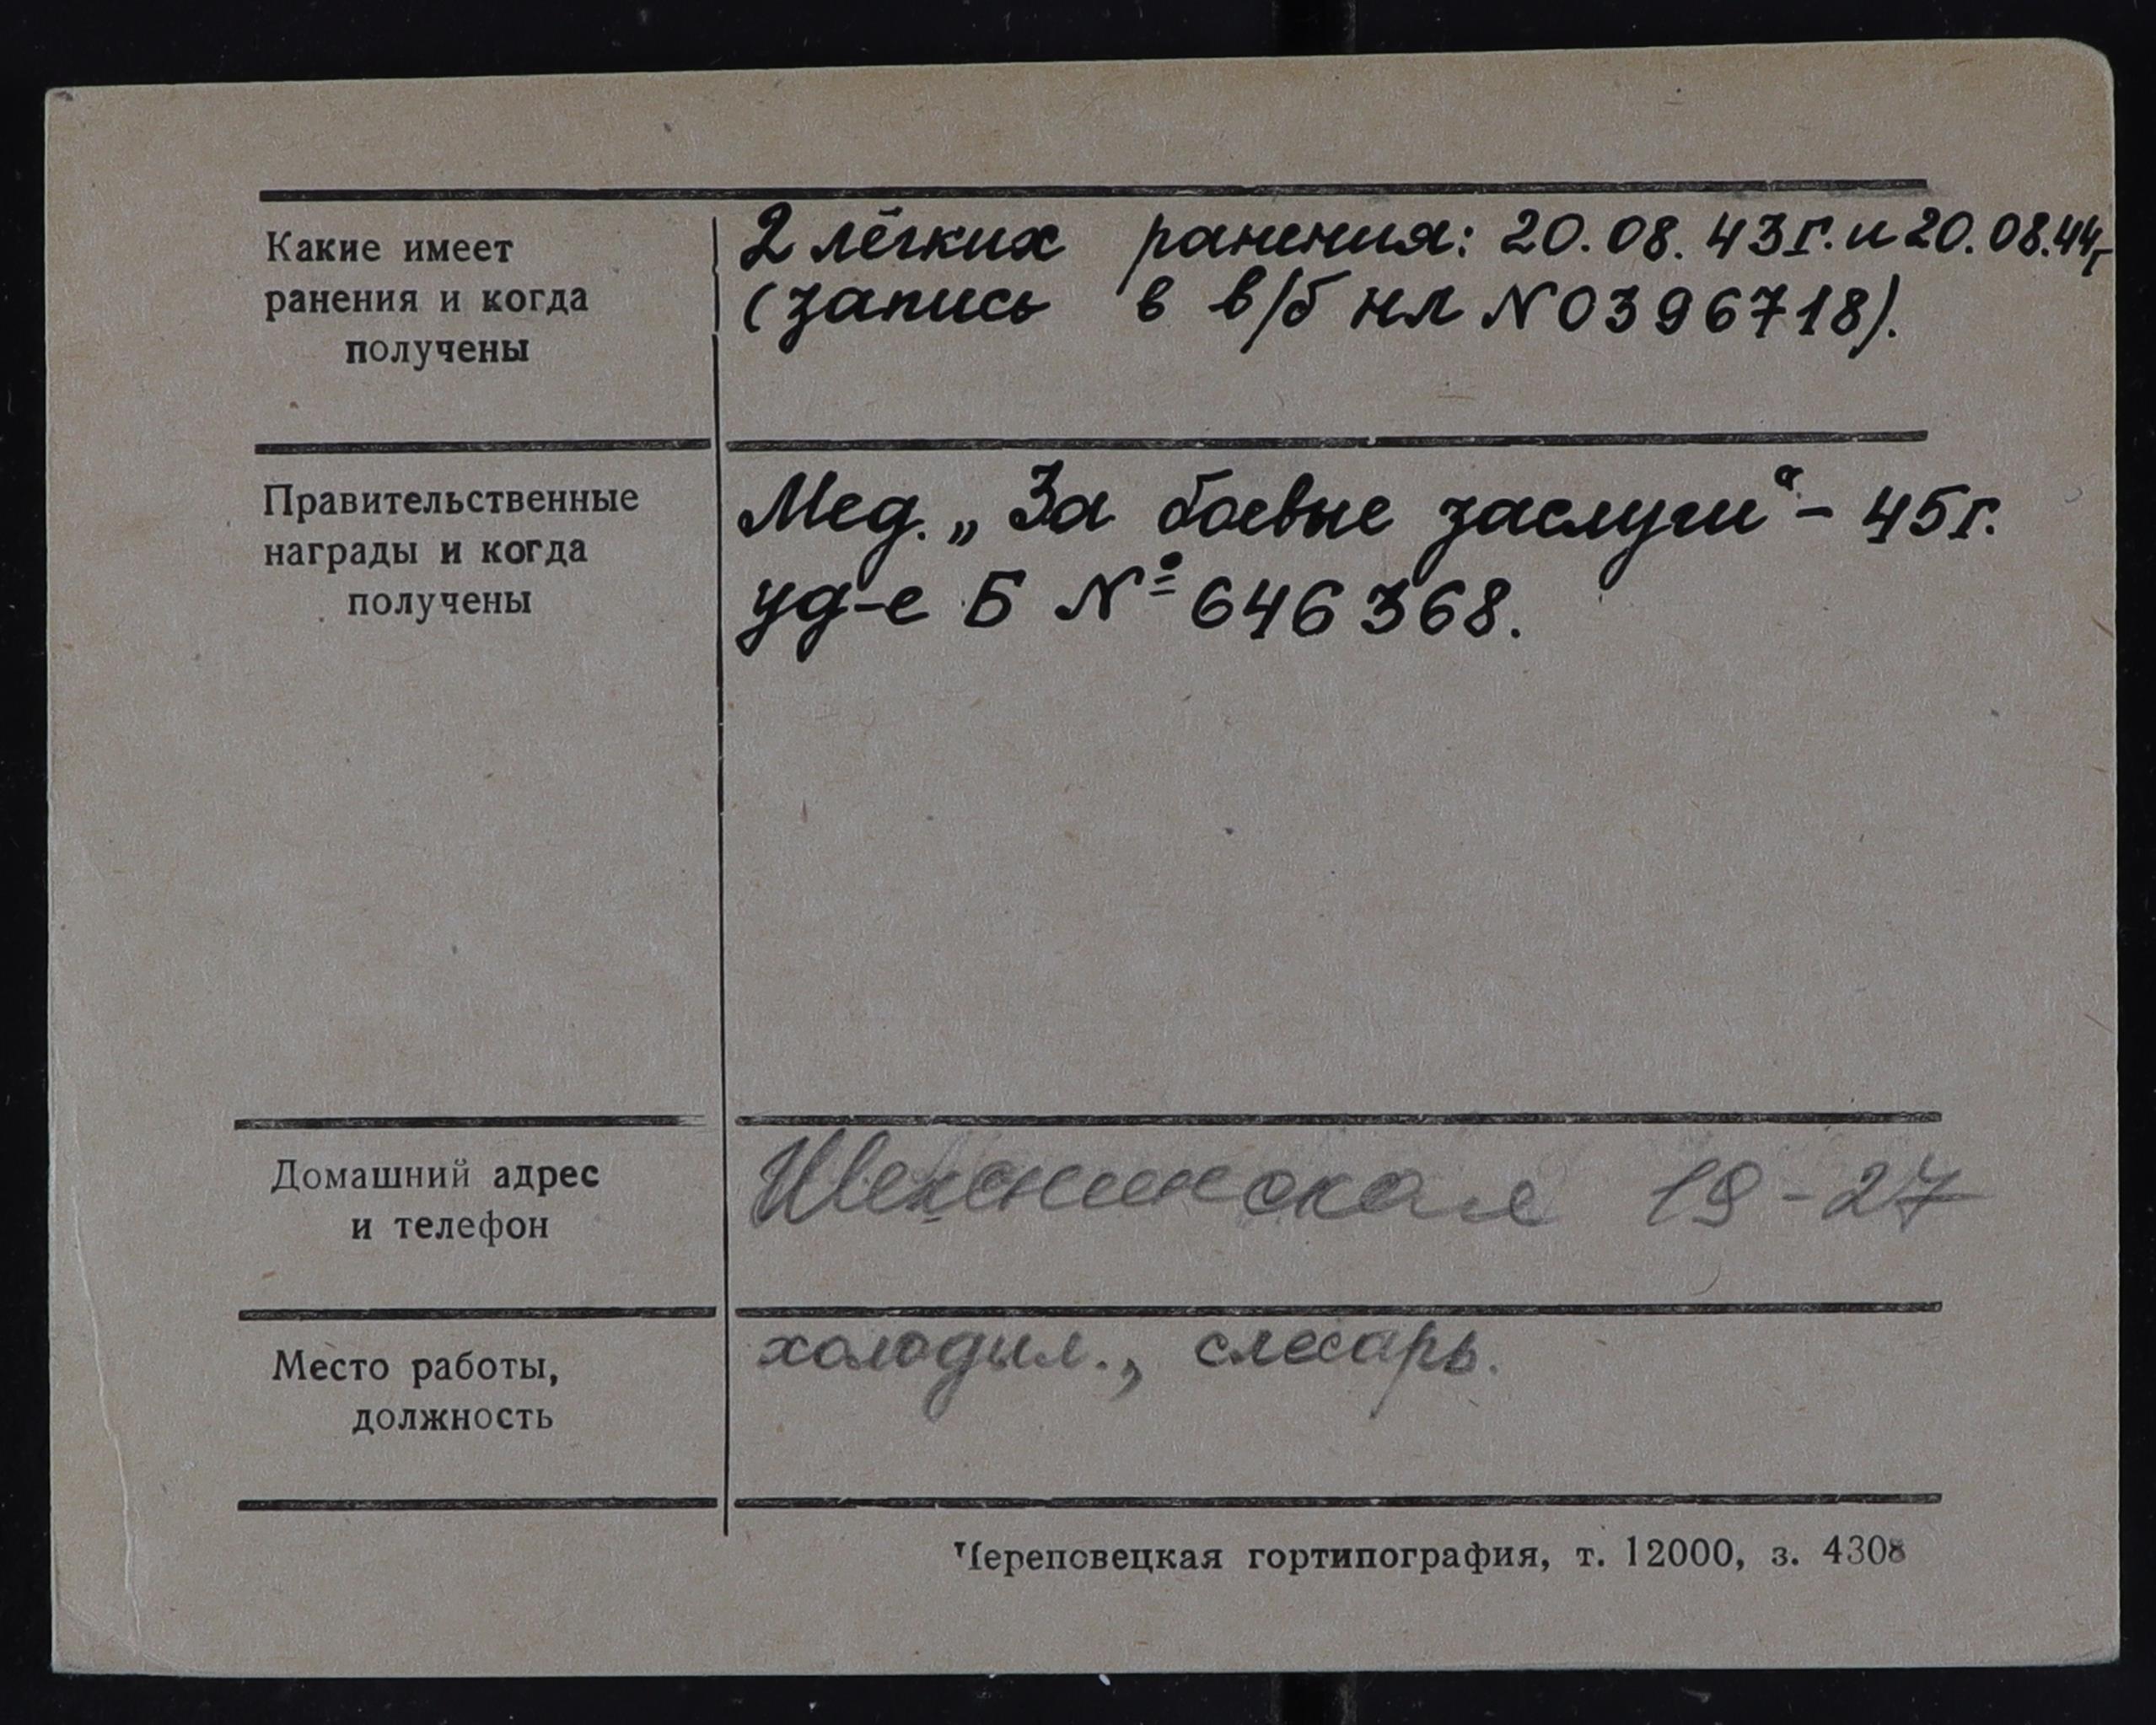 Какие имеет
ранения и когда
получены
2 лёгких ранения: 20.08.43г. и 20.08.44г
(запись в в/б нл N0396718).
Правительственные
награды и когда
получены
Мед. „За боевые заслуги“ - 45г.
уд-е Б № 646368.
Домашний адрес
и телефон
Шекснинская 19-27
Место работы,
должность
холодил., слесарь.
Череповецкая гортипография, т. 12000, з. 4308